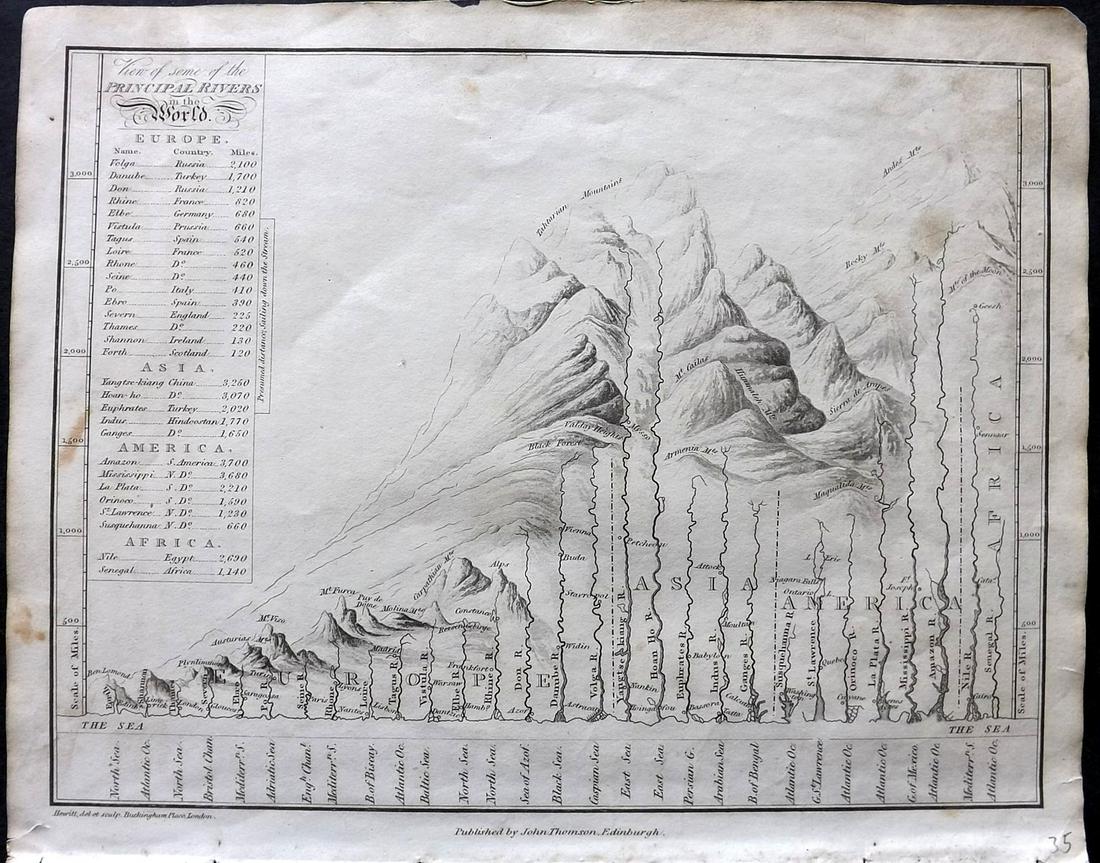 View of some of the
PRINCIPAL RIVERS
in the
World.
EUROPE.
Name. Country. Miles.
Volga Russia 2,100
Danube Turkey 1,700
Don Russia 1,210
Rhine France 820
Elbe Germany 680
Vistula Prussia 660
Tagus Spain 540
Loire France 520
Rhone Do. 460
Seine Do. 440
Po Italy 410
Ebro Spain 390
Severn England 225
Thames Do. 220
Shannon Ireland 130
Forth Scotland 120
ASIA.
Yangtse-kiang China 3,250
Hoan-ho Do. 3,070
Euphrates Turkey 2,020
Indus Hindoostan 1,770
Ganges Do. 1,650
AMERICA.
Amazon S. America 3,700
Mississippi N. Do. 3,680
La Plata S. Do. 2,210
Orinoco S. Do. 1,590
St. Lawrence N. Do. 1,230
Susquehanna N. Do. 660
AFRICA.
Nile Egypt 2,690
Senegal Africa 1,140
Presumed distance, Sailing down the Stream.
3,000
2,500
2,000
1,500
1,000
500
Scale of Miles.
3,000
2,500
2,000
1,500
1,000
500
Scale of Miles.
Mountains
Andes Mts.
Rocky Mts.
Mts. of the Moon
Geesh
Mt. Cailas
Himmaleh Mts.
Sierra de
Valday Heights
Black Forest
Armenia Mts.
Sennaar
Vienna
Buda
Petcheou
Attock
L. Erie
Niagara Falls
Ontario L.
Carpathian Mts.
Alps
Mt. Furca
Puy de Dome
Molina Mts.
Constance
Mt. Viso
Asturias Mts.
Plenlimmon
Ben Lomond
Madrid
Widin
Moultan
Babylon
Quebec
Warsaw
Frankfort
Nankin
Saragossa
Nantes
Lisbon
Dantzic
Azof
Astracan
Bassora
Cairo
EUROPE
ASIA
AMERICA
AFRICA
Severn
Ebro
Seine R.
Rhone
Loire
Tagus R.
Vistula R.
Elbe R.
Rhine R.
Don R.
Danube R.
Volga R.
Yangtse-kiang R.
Hoan Ho R.
Euphrates R.
Indus R.
Ganges R.
Susquehanna R.
St. Lawrence
Orinoco R.
La Plata R.
Mississippi R.
Amazon R.
Nile R.
Senegal R.
THE SEA
THE SEA
North Sea.
Atlantic Oc.
North Sea.
Bristol Chan.
Mediterrn. S.
Adriatic Sea
Engh. Chanl.
Mediterrn. S.
B. of Biscay
Atlantic Oc.
Baltic Sea.
North Sea.
North Sea.
Sea of Azof.
Black Sea.
Caspian Sea.
East Sea.
East Sea.
Persian G.
Arabian Sea.
B. of Bengal
Atlantic Oc.
G. St. Lawrence
Atlantic Oc.
Atlantic Oc.
G. of Mexico.
Atlantic Oc.
Mediterrn. S.
Atlantic Oc.
Hewitt, del et sculp. Buckingham Place, London.
Published by John Thomson, Edinburgh.
35